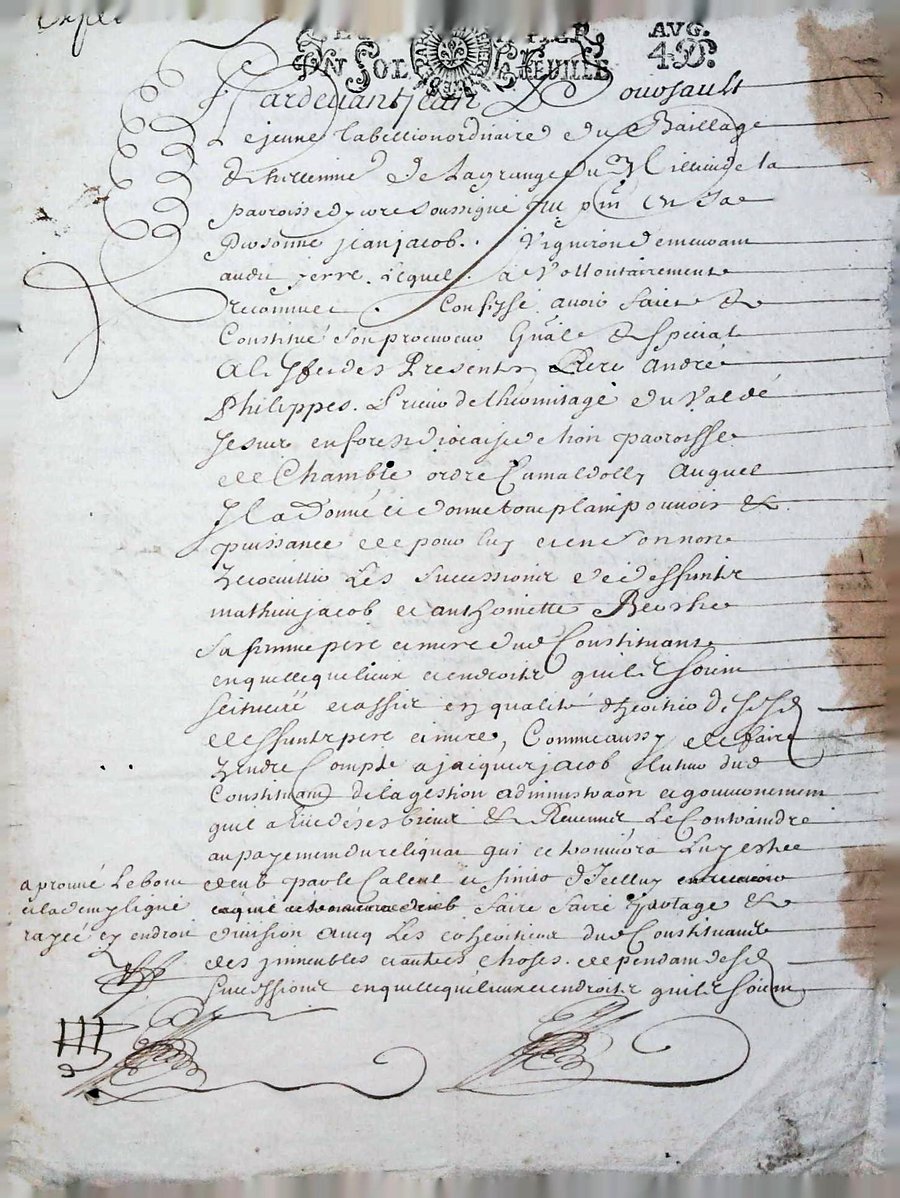 Expe
UN SOL LA FEUILLE
AVG.
4 D.
Pardevant Jean Bouosault
Le jeune Tabellion ordinaire du Baillage
de La grange du Millieu de la
parroisse dyvre soussigné fut pnt en Sa
Personne jean jacob. Vigneron demeurant
audit yerre. Lequel. a Vollontairement
reconnu et Confessé avoir faict et
Constitué son procureur gnâl et special
Pere andré
Philippes. Prieur de lhermitage du Val de
Jesus en forest diocaise de lion parroisse
de Chamble ordre Camaldolly Auquel
Il a Donné et donne tout plain pouvoir et
puissance de pour luy et en son nom
Recoeuillir Les successions de deffuntz
mathieu jacob et anthoinette
Sa femme pere et mere dud Constituant
en quelleque lieux et endroitz quils soient
scituéé et assis en qualité dheritier desd
deffuntz pere et mere, Comme aussy de faire
Rendre Compte a jacques jacob tuteur dud
Constituant de la gestion administraon et gouvernement
quil a eüe de ses bieux et Revenus, Le Contraindre
au payement du reliqua qui ce trouvera Luy estre
deub par le Calcul et finito d'Icelluy
faire faire partage et
division avec Les coheritiers dud Constituant
des jmmeubles et autres choses. dependant desd
Successions en quelleque lieux et endroitz quils soient
aprouvé Le bout
et la demy ligne
rayéé en endroit